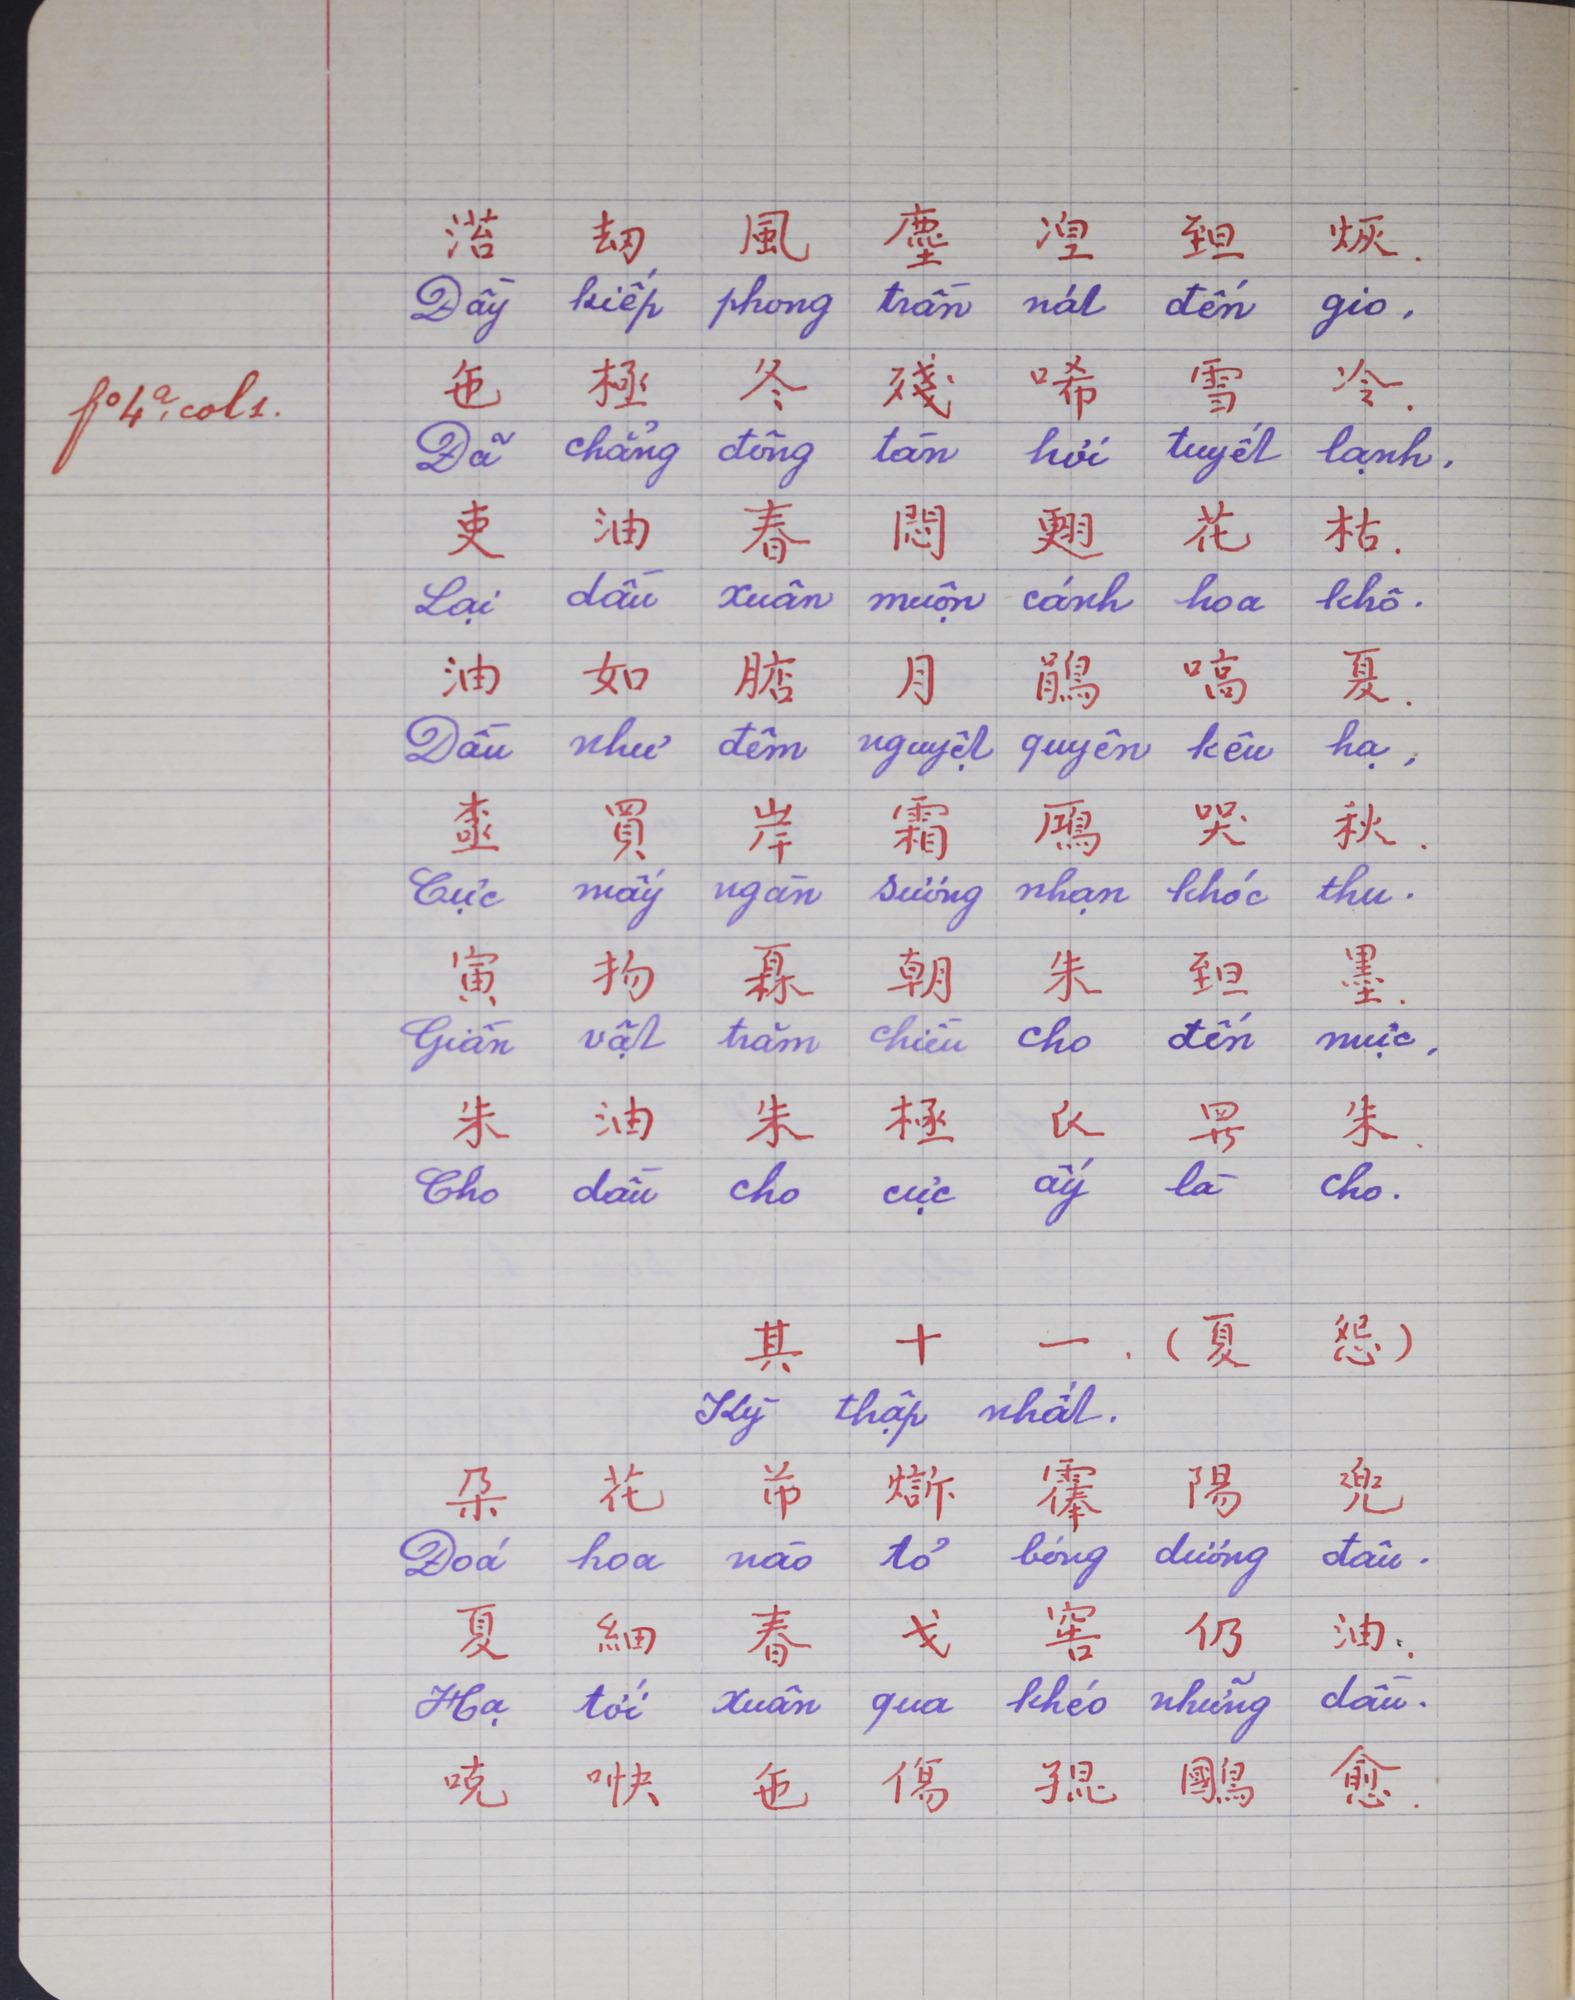 苔 劫 風 塵 湼 𦤾 烣.
Dầy kiếp phong trần nát đến gio,
fº 4ª, col 1.
㐌 極 冬 殘 唏 雪 冷.
Đã chẳng đông tàn hơi tuyết lạnh,
吏 油 春 悶 𦑃 花 枯.
Lại dầu xuân muộn cánh hoa khô.
油 如 𣎀 月 鵑 嗃 夏.
Dầu như đêm nguyệt quyên kêu hạ,
買 岸 霜 鴈 哭 秋.
Cực mấy ngàn sương nhạn khóc thu.
寅 抅 𤾓 朝 朱 𦤾 墨.
Giần vật trăm chiều cho đến mực,
朱 油 朱 極 𧘇 𱺵 朱.
Cho dầu cho cực ấy là cho.
其 十 一. (夏 怨)
Kỳ thập nhất.
朶 花 芇 𤒠 䨦 陽 兜
Đoá hoa nào tỏ bóng dương đâu.
夏 細 春 戈 窖 仍 油.
Hạ tới xuân qua khéo những dầu.
唴 㗕 㐌 傷 𡥵 鷵 愈.